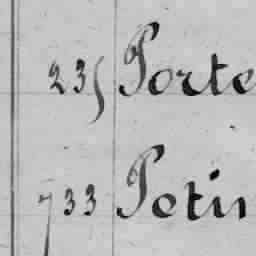 235 Porte
733 Petin